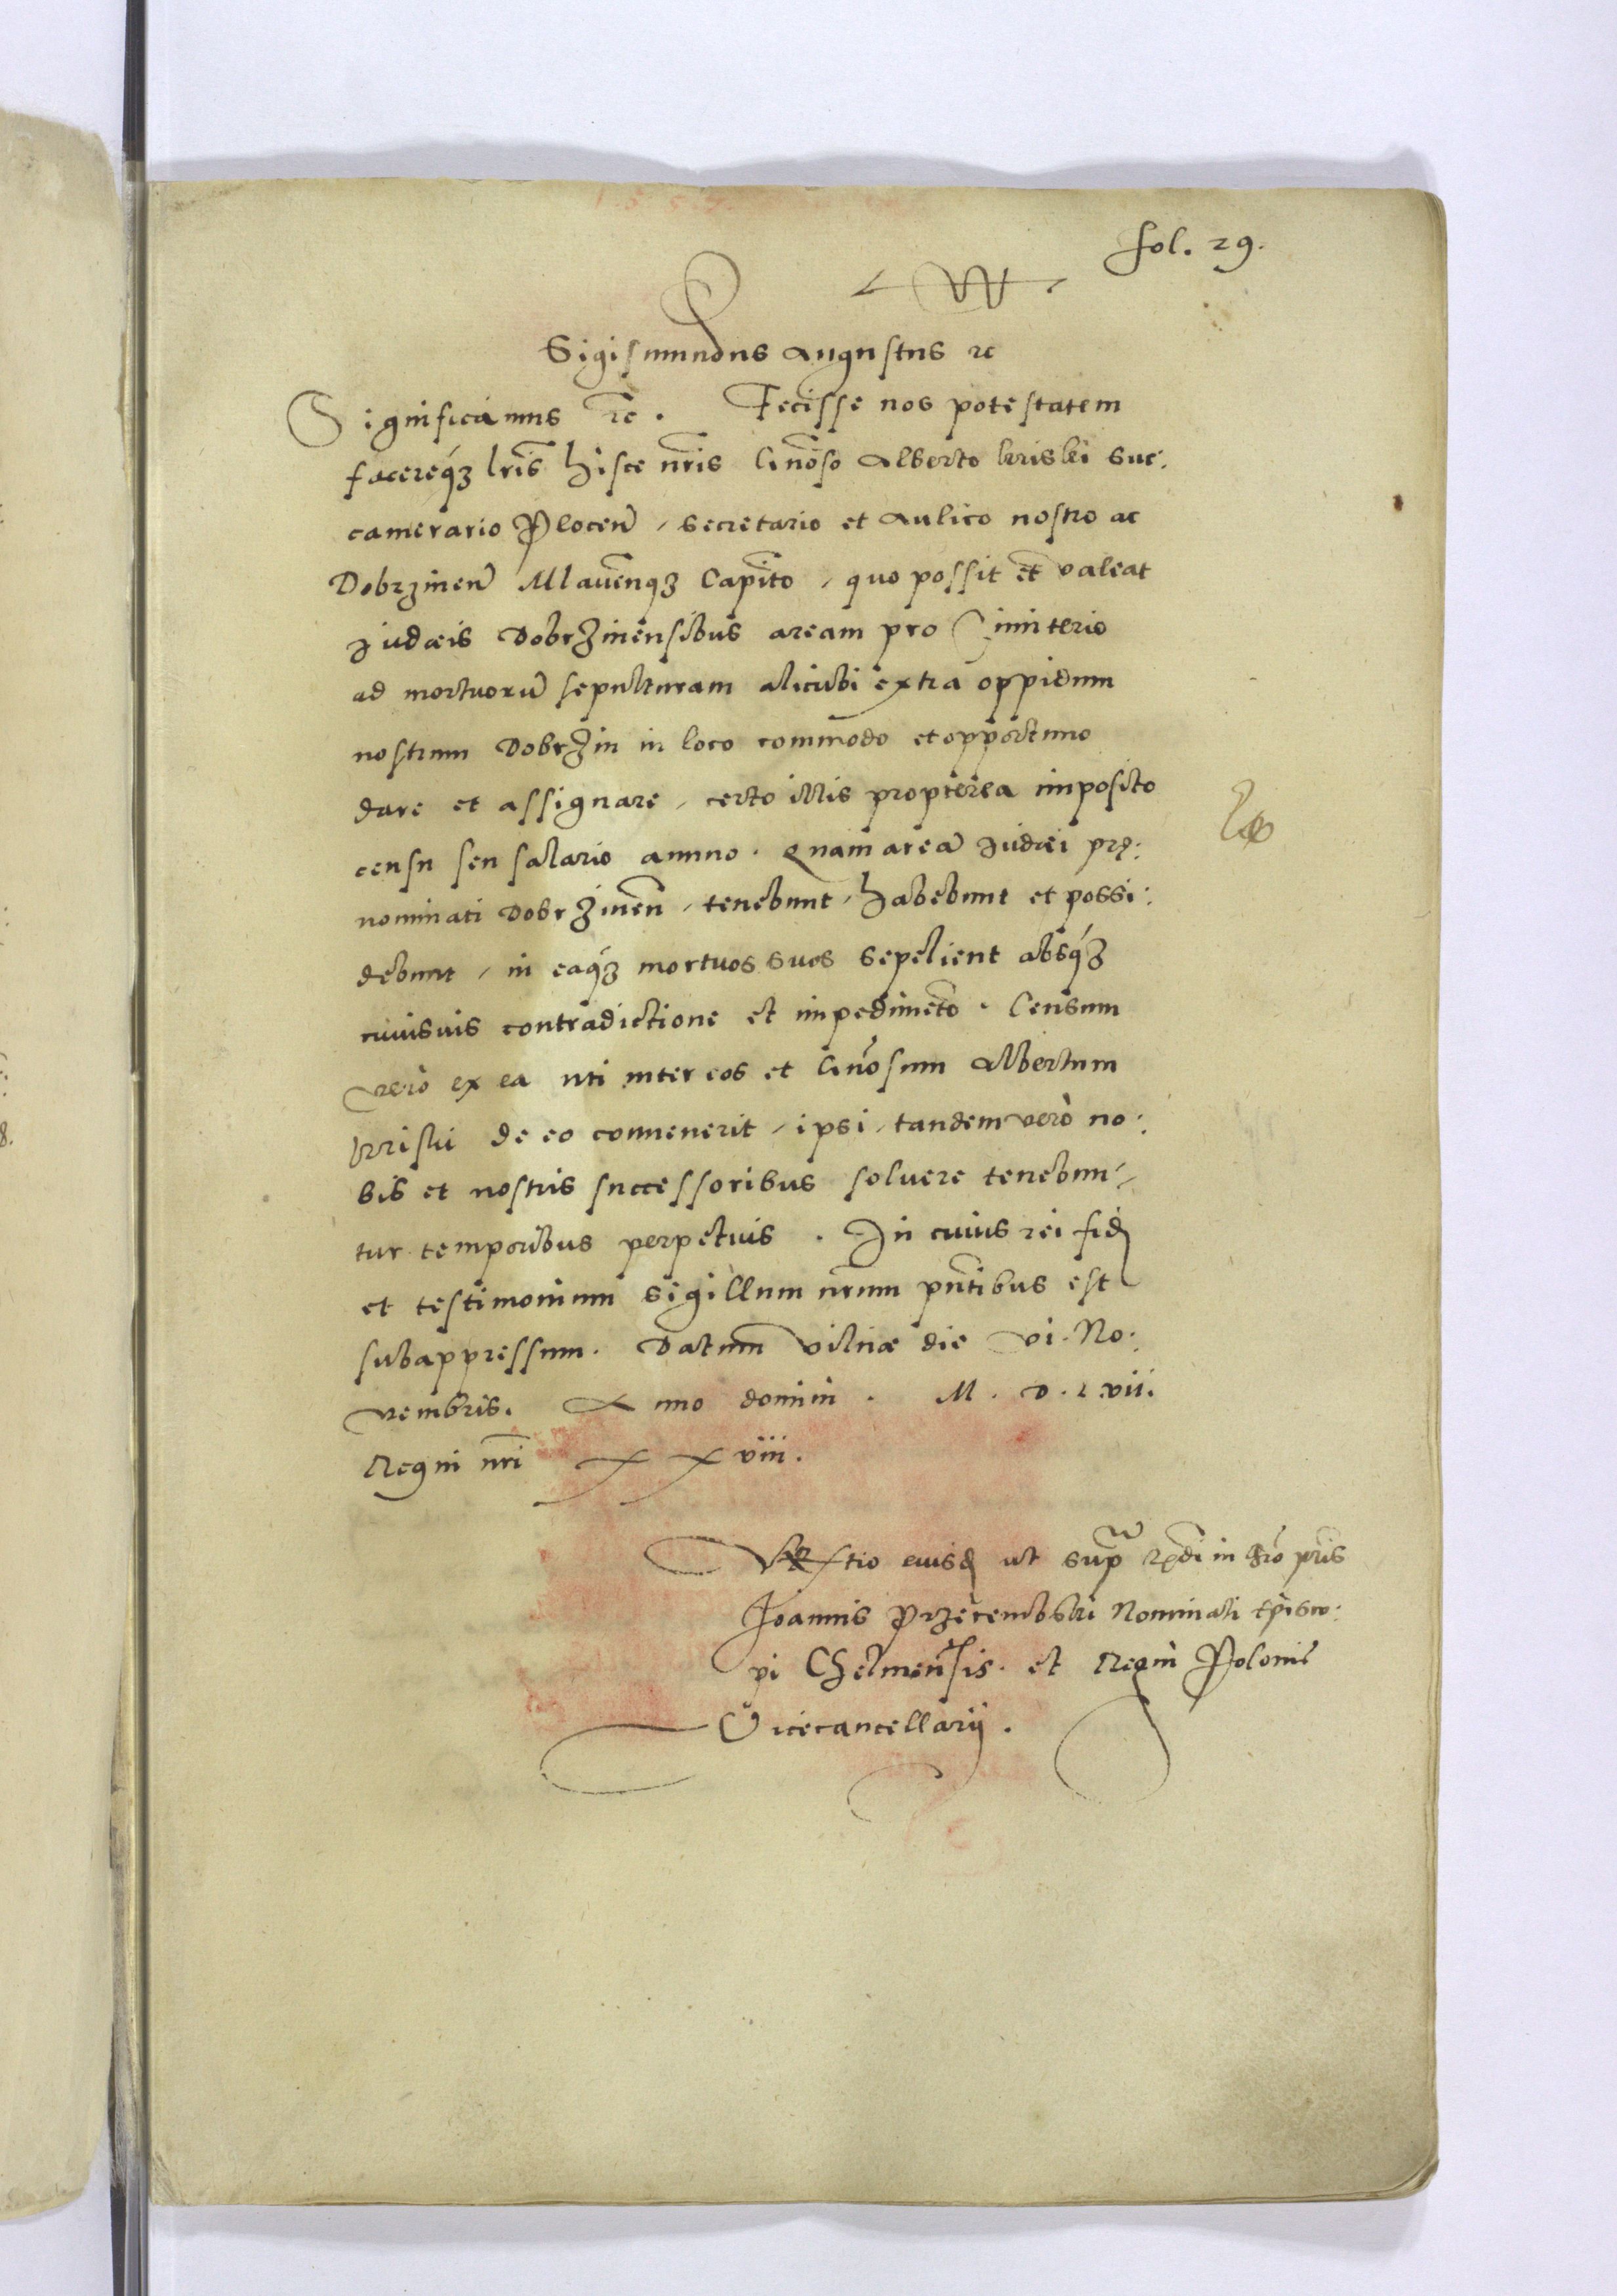 1557.
fol. 29.
Sigismundus Augustus rc
Significamus rc. Fecisse nos potestatem
facereq́ꝫ lr̃is hisce nr̃is Gnõso Alberto kriski suc:
camerario Plocen̄, secretario et Aulico nostro ac
Dobrzinen̄ Mlaueñqꝫ Capit̃o, quo possit et valeat
Judæis Dobrzinensibus aream pro Cimiterio
ad mortuorũ sepulturam alicubi extra oppidum
nostrum Dobrzin in loco commodo et opportuno
dare et assignare, certo illis propterea imposito
censu seu salario annuo. Quam areã Judæi prę:
nominati Dobrzineñ, tenebunt, habebunt et possi:
debunt, in eaq́ꝫ mortuos suos sepelient absq́ꝫ
cuiusuis contradictione et impedimẽto. Censum
verò ex ea uti inter eos et Gnõsum Albertum
kriski de eo conuenerit, ipsi, tandem verò no:
bis et nostris successoribus soluere tenebun,
tur temporibus perpetuis. In cuius rei fidꝫ
et testimonium sigillum nr̃um pñtibus est
subappressum. Datum Vilnæ die vi. No:
vembris. Anno domini. M. D. L vii.
Regni nr̃i xxviii.
eiusdꝫ ut sup̃ Rñdi in Chr̃o pr̃is
Joannis Przerembski Nominati Ep̃isco:
pi Chelmeñsis. et Regni Polonię
Vicecancellarij.